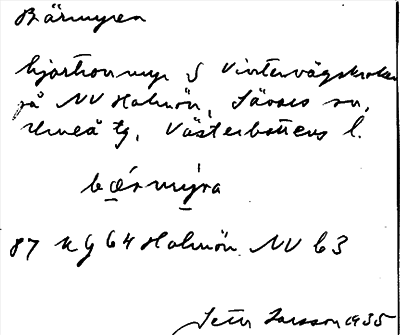 Bärmyren
hjortronmyr S Vintervägskroken
på NV Holmön, Sävars sn,
Umeå tg, Västerbottens l.
bǽrmýra
87 u g 64 Holmön NV 63
Setn Larsson 1935